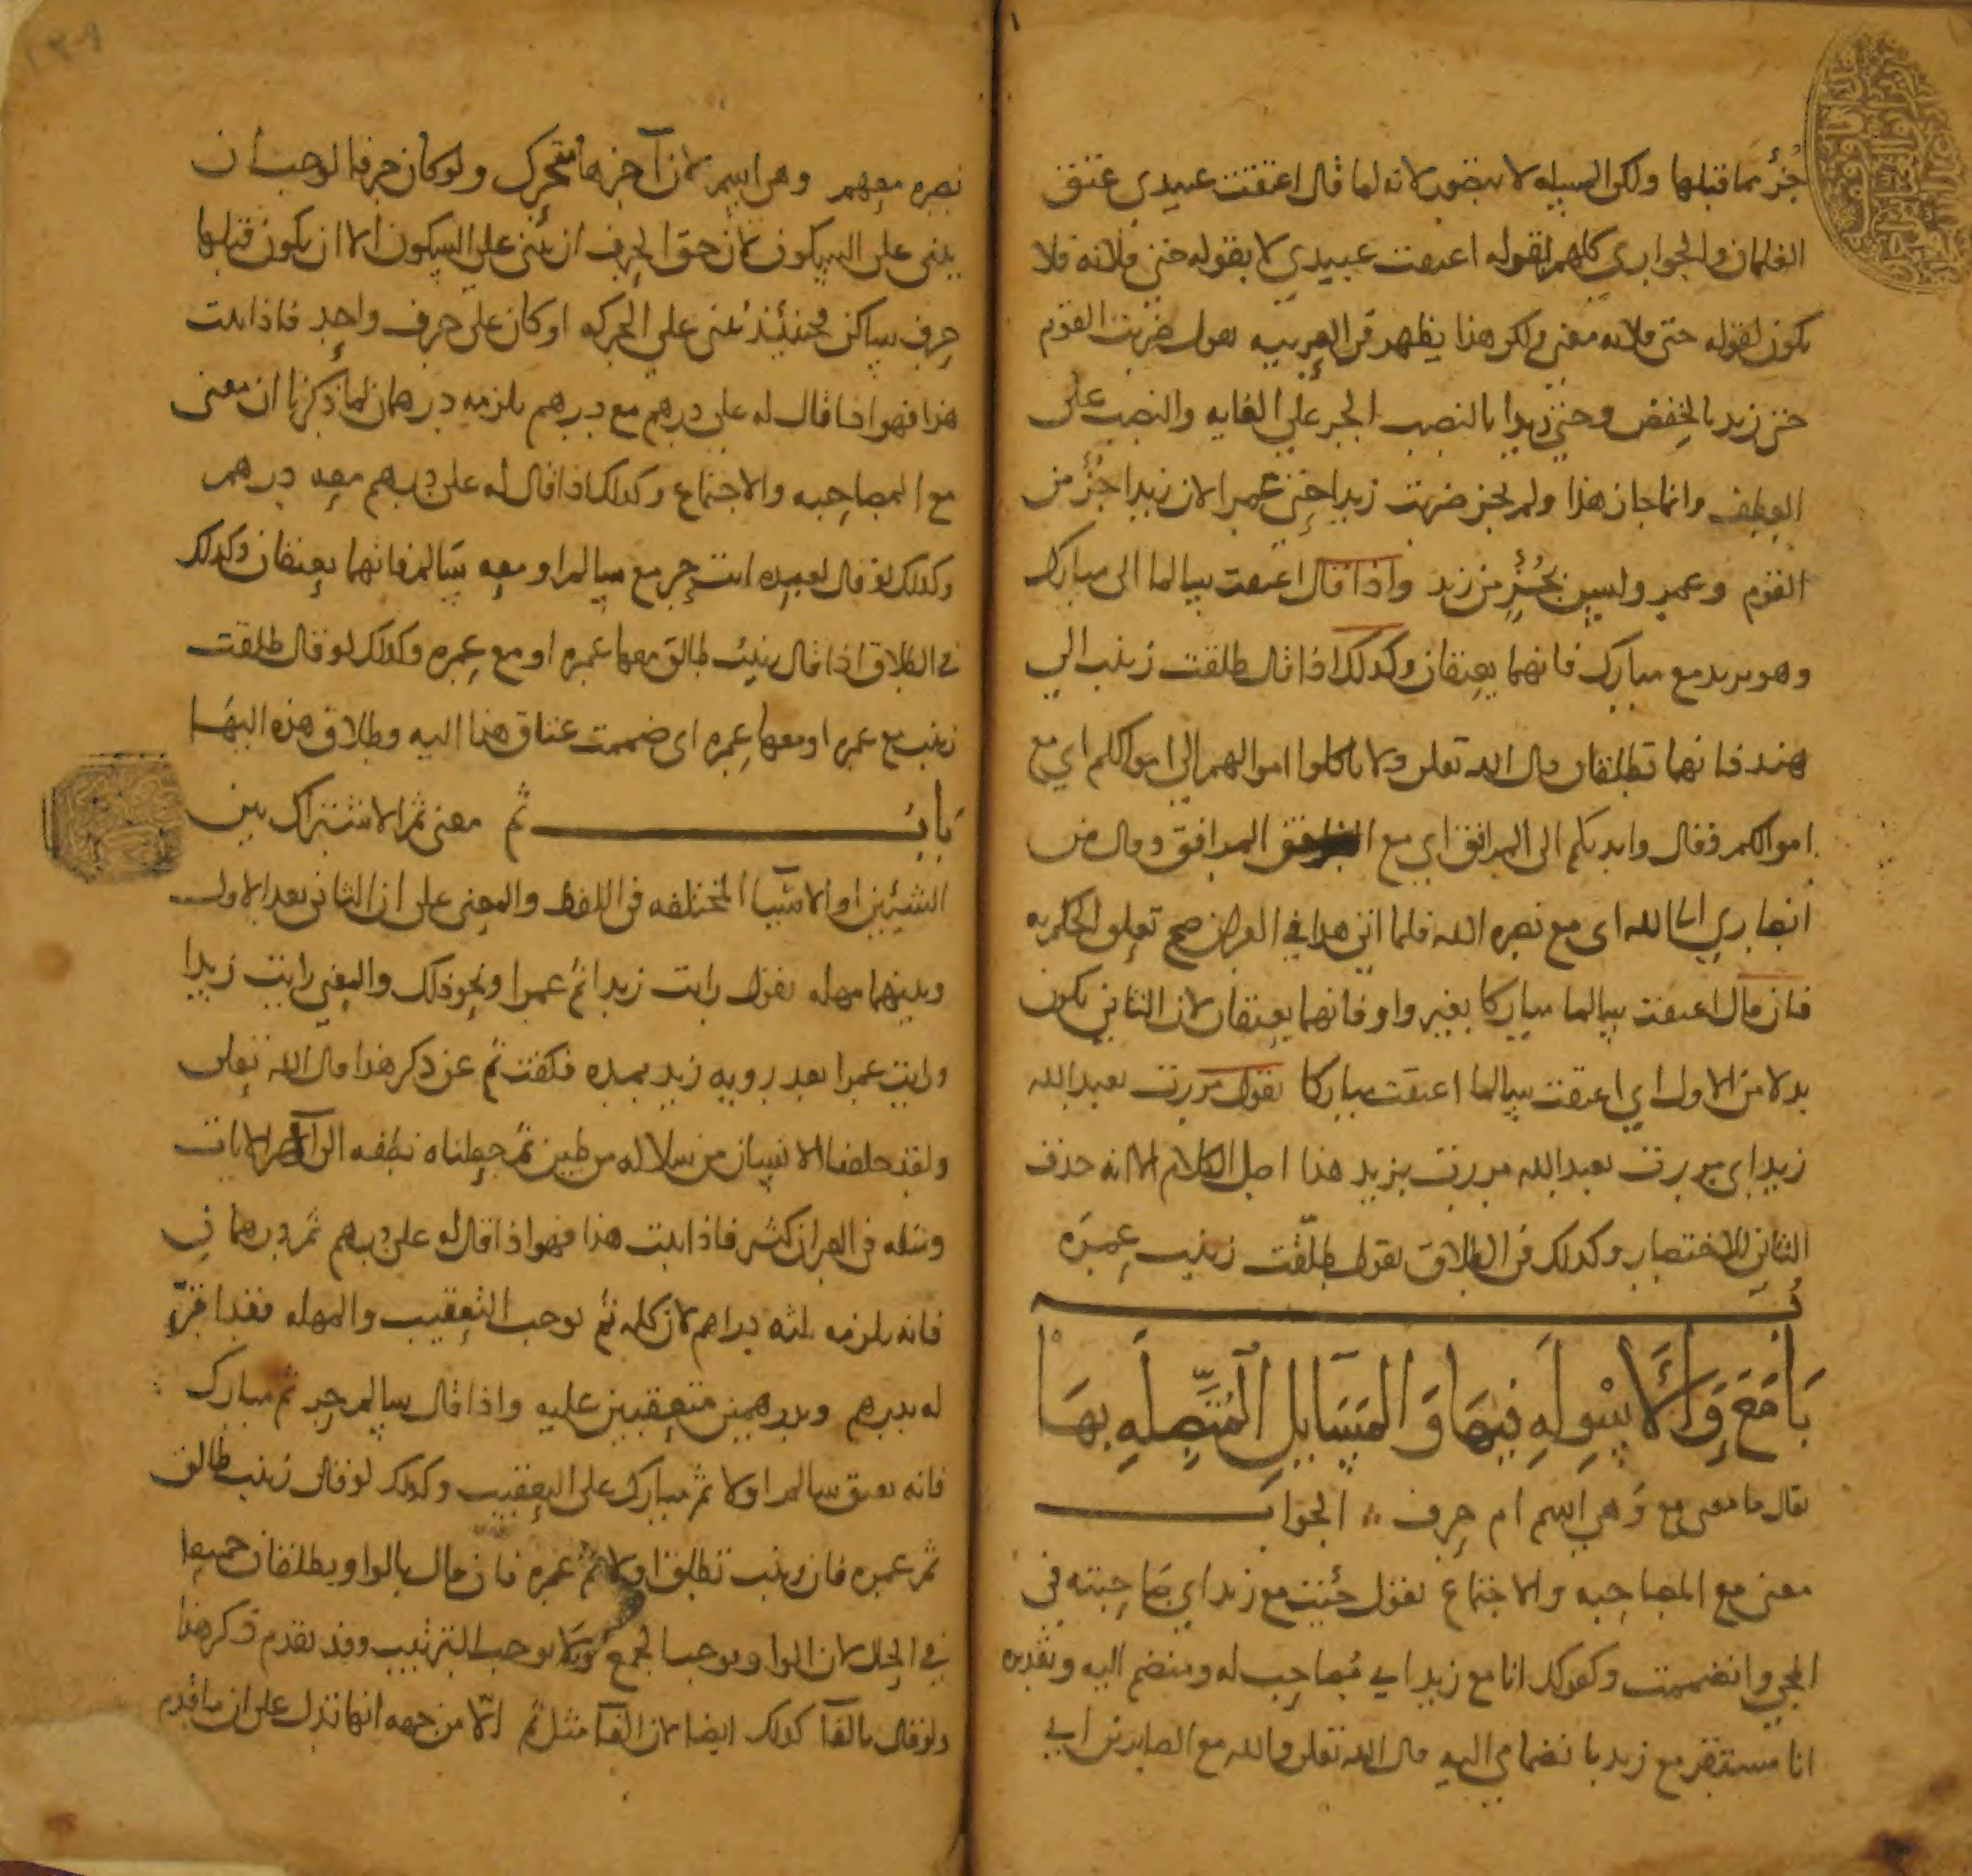 جُزْءٌ مما قبلها ولكن المسيله لا تتصور لانه لما قال اعتقت عبيدي عتق
الغلمان والجواري كلهم لقوله اعتقت عبيدي لا بقوله حتى فلانه فلا
يكون لقوله حتى فلانه معنى ولكن هذا يظهر في العربيه تقول ضربت القوم
حتى زيد بالخفض وحتى زيدا بالنصب الجر على الغايه والنصب على
العطف وانما جاز هذا ولم يجز ضربت زيدا حتى عمرا لان زيدا جزء من
القوم وعمرو ليس بجُزْءٍ من زيد واذا قال اعتقت سالما الى مبارك
وهو يريد مع مبارك فانهما يعتقان وكذلك اذا قال طلقت زينب الى
هند فانهما تطلقان قال الله تعلى ولا تاكلوا اموالهم الى اموالكم اي مع
اموالكم وقال وايديكم الى المرافق اي مع المرافق وقال من
انصاري الى الله اى مع نصره الله فلما اتى هذا في القران صح تعلق الحكم به
فان قال اعتقت سالما مباركا بغير واو فانهما يعتقان لان الثاني يكون
بدلا من الاول اي اعتقت سالما اعتقت مباركا تقول مررت بعبد الله
زيد اى مررت بعبد الله مررت بزيد هذا اصل الكلام الا انه حذف
الثاني للاختصار وكذلك في الطلاق تقول طلّقت زينب عمرَه
بَابُ مَعَ وَالْأَسْوِلَهِ فِيهَا وَالمَسَايِلِ الْمُتَّصِلَهِ بِهَا
يقال ما معنى مع وَهي اسم ام حرف الجوابـــ
معنى مع المصاحبه والاجتماع تقول جئت مع زيد اي صاحبته في
المجي وانضممت وكقولك انا مع زيد اي مُصاحب له ومنضم اليه وتقديره
انا مستقر مع زيد بانضمامي اليه قال الله تعلى والله مع الصابرين اي
نصره معهم وهي اسم لان آخرها متحرك ولو كان حرفا لوجب ان
يبنى على السكون لان حق الحرف ان يبنى على السكون الا ان يكون قبلها
حرف ساكن فحينئذ يُبنى على الحركه او كان على حرف واحد فاذا ثبت
هذا فهو اذا قال له على درهم مع درهم يلزمه درهمان لما ذكرنا ان معنى
مع المصاحبه والاجتماع وكذلك اذا قال له على درهم معه درهم
وكذلك لو قال لعبده انت حر مع سالم او معه سَالم فانهما يعتقان وكذلك
في الطلاق اذا قال زينب طالق معها عمره او مع عمره وكذلك لو قال طلقت
زينب مع عمره او معها عمره اى ضممت عتاق هذا اليه وطلاق هذه اليهَا
بَابُـــــ ثم معنى ثم الاشتراك بين
الشيئين او الاشيآ المختلفه في اللفظ والمعنى على ان الثاني بعد الاول
وبينهما مهله تقول رايت زيدا ثم عمرا ونحو ذلك والمعنى رايت زيدا
ورايت عمرا بعد رويه زيد بمده فكفت ثم عن ذكر هذا قال الله تعلى
ولقد خلقنا الانسان من سلاله من طين ثم جعلناه نطفه الى آخر الايات
ومثله في القران كثير فاذا ثبت هذا فهو اذا قال له على درهم ثم درهمان
فانه يلزمه ثلثه دراهم لان كلمه ثم توجب التعقيب والمهله فقد اقرّ
له بدرهم وبدرهمين متعقبين عليه واذا قال سالم حر ثم مبارك
فانه يعتق سالم اولا ثم مبارك على التعقيب وكذلك لو قال زينب طالق
ثم عمره فان زينب تطلق اولا ثم عمره فان قال بالواو يطلقان جميعا
في الحال لان الواو يوجب الجمع ولا يوجب الترتيب وقد تقدم ذكر هذا
ولو قال بالفآ كذلك ايضا لان الفآ مثل ثم الّا من جهه انها تدل على ان ما تقدم